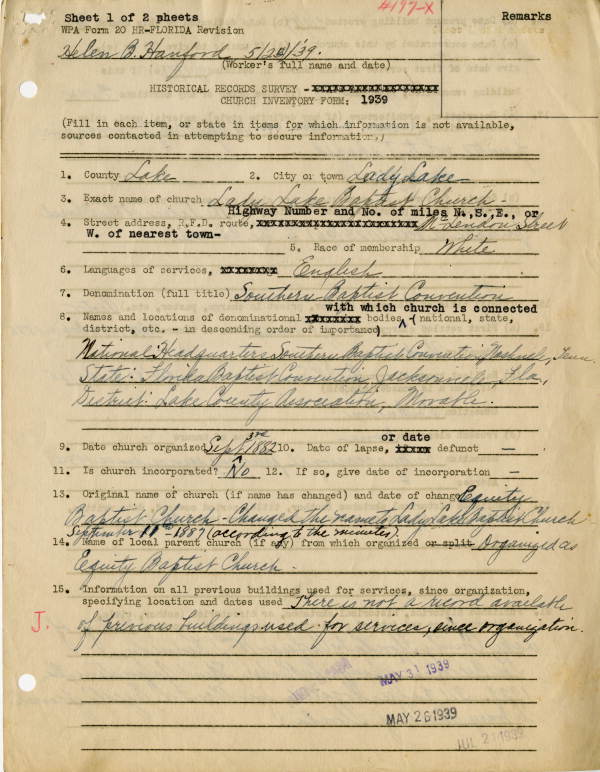 Sheet 1 of 2 pheets
4197-X
Remarks
WPA Form 20 HR-FLORIDA Revision
Helen B. Hanford 5/23/39.
(Worker's full name and date)
HISTORICAL RECORDS SURVEY -
CHURCH INVENTORY FORM: 1939
(Fill in each item, or state in items for which information is not available,
sources contacted in attempting to secure information.)
1. County Lake 2. City or town Lady Lake
3. Exact name of church Lady Lake Baptist Church
Highway Number and No. of miles N.,S.,E., or
4. Street address, R.F.D. route, McLendon Street
W. of nearest town-
5. Race of membership White
6. Languages of services, English
7. Denomination (full title) Southern Baptist Convention
with which church is connected
8. Names and locations of denominational bodies (national, state,
district, etc. - in descending order of importance)
National: Headquarters Southern Baptist Convention, Nashville, Tenn.
State: Florida Baptist Convention, Jacksonville, Fla.,
District: Lake County Association, Movable.
or date
9. Date church organized Sept 3rd 1882 10. Date of lapse, defunct —
11. Is church incorporated? No 12. If so, give date of incorporation —
13. Original name of church (if name has changed) and date of change Equity
Baptist Church - Changed the name to Lady Lake Baptist Church
September 11th - 1887 (according to the minutes).
14. Name of local parent church (if any) from which organized or split Organized as
Equity Baptist Church.
15. Information on all previous buildings used for services, since organization,
specifying location and dates used There is not a record available
J.
of previous buildings used for services, since organization.
MAY 31 1939
MAY 26 1939
JUL 21 1939